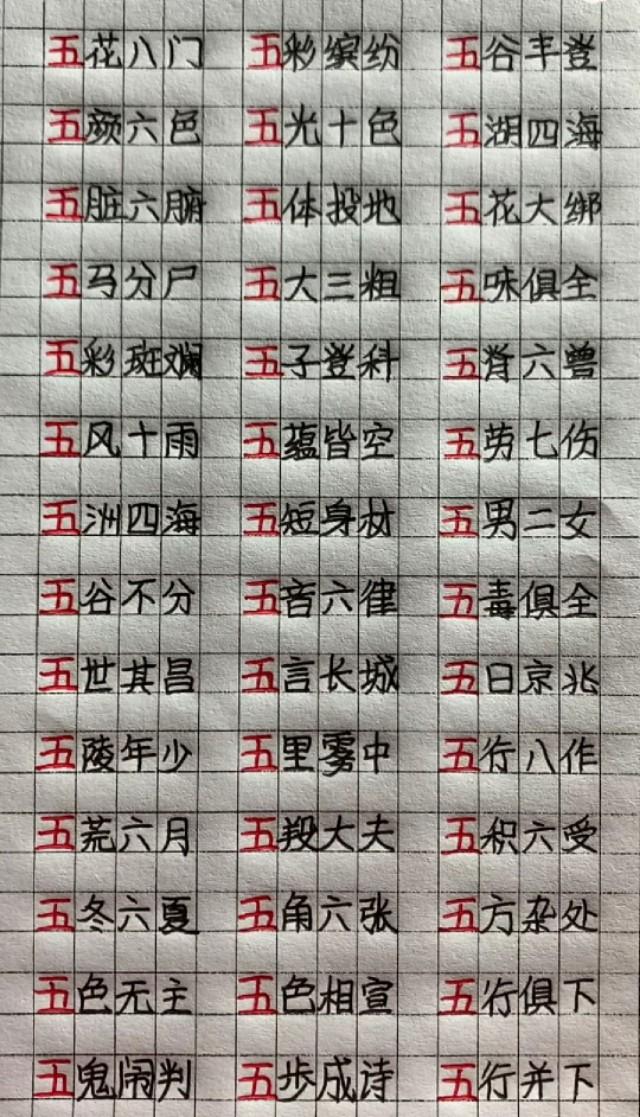 五花八门 五彩缤纷 五谷丰登
五颜六色 五光十色 五湖四海
五脏六腑 五体投地 五花大绑
五马分尸 五大三粗 五味俱全
五彩斑斓 五子登科 五脊六兽
五风十雨 五蕴皆空 五劳七伤
五洲四海 五短身材 五男二女
五谷不分 五音六律 五毒俱全
五世其昌 五言长城 五日京兆
五陵年少 五里雾中 五行八作
五荒六月 五羖大夫 五积六受
五冬六夏 五角六张 五方杂处
五色无主 五色相宣 五行俱下
五鬼闹判 五步成诗 五行并下